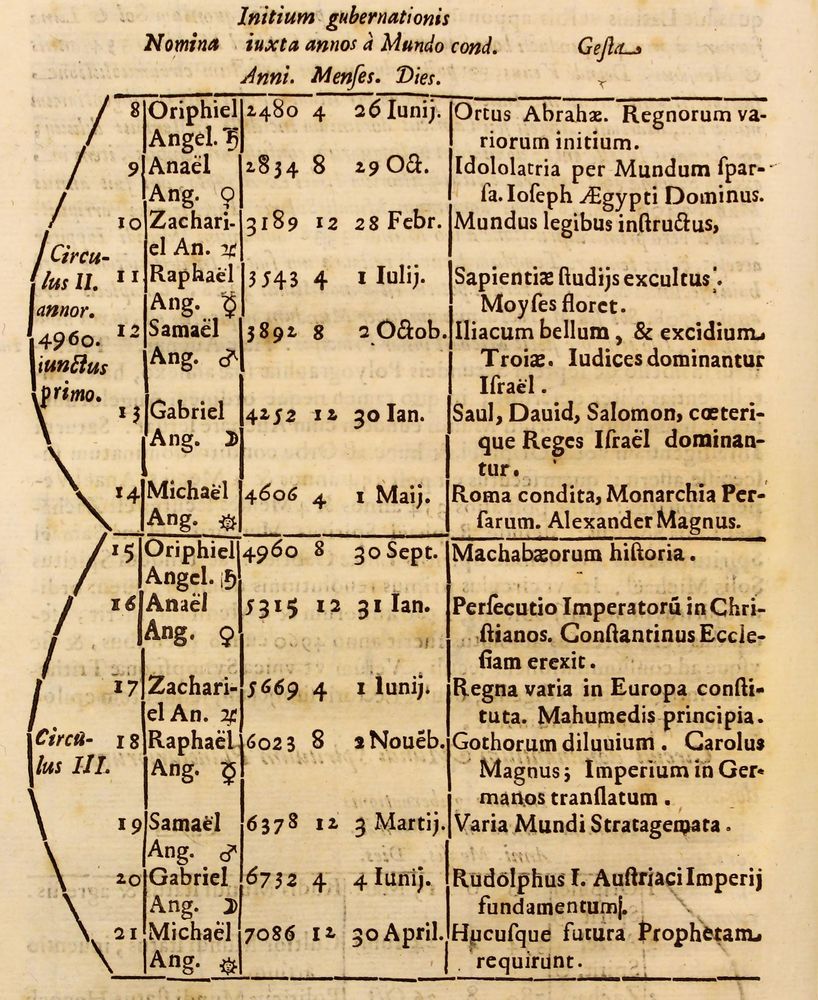 Initium gubernationis
Nomina iuxta annos à Mundo cond. Gesta
Anni. Menſes. Dies.
8 Oriphiel 2480 4 26 Iunij. Ortus Abrahæ. Regnorum va-
Angel. ♄ riorum initium.
9 Anaël 2834 8 29 Oct. Idololatria per Mundum ſpar-
Ang. ♀ ſa. Ioſeph Ægypti Dominus.
10 Zachari- 3189 12 28 Febr. Mundus legibus inſtructus,
el An. ♃
11 Raphaël 3543 4 1 Iulij. Sapientiæ ſtudijs excultus.
Ang. ☿ Moyſes floret.
12 Samaël 3892 8 2 Octob. Iliacum bellum, & excidium
Ang. ♂ Troiæ. Iudices dominantur
Iſraël.
13 Gabriel 4252 12 30 Ian. Saul, Dauid, Salomon, cœteri-
Ang. ☽ que Reges Iſraël dominan-
tur.
14 Michaël 4606 4 1 Maij. Roma condita, Monarchia Per-
Ang. ☼ ſarum. Alexander Magnus.
Circu-
lus II.
annor.
4960.
iunctus
primo.
15 Oriphiel 4960 8 30 Sept. Machabæorum hiſtoria.
Angel. ♄
16 Anaël 5315 12 31 Ian. Perſecutio Imperatorū in Chri-
Ang. ♀ ſtianos. Conſtantinus Eccle-
ſiam erexit.
17 Zachari- 5669 4 1 Iunij. Regna varia in Europa conſti-
el An. ♃ tuta. Mahumedis principia.
18 Raphaël 6023 8 2 Nouēb. Gothorum diluuium. Carolus
Ang. ☿ Magnus; Imperium in Ger-
manos tranſlatum.
19 Samaël 6378 12 3 Martij. Varia Mundi Stratagemata.
Ang. ♂
20 Gabriel 6732 4 4 Iunij. Rudolphus I. Auſtriaci Imperij
Ang. ☽ fundamentum.
21 Michaël 7086 12 30 April. Hucuſque futura Prophetam
Ang. ☼ requirunt.
Circū-
lus III.